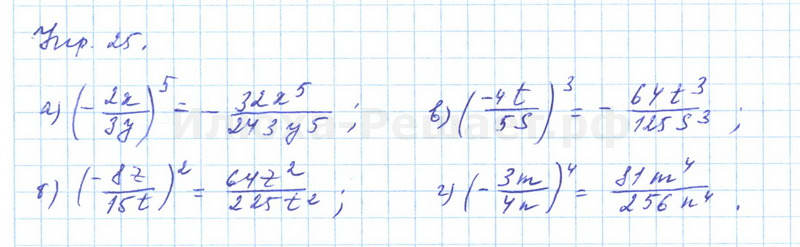 Упр. 25.
а) (-2x/3y)^5 = -32x^5/243y^5; в) (-4t/5s)^3 = -64t^3/125s^3;
б) (-8z/15t)^2 = 64z^2/225t^2; г) (-3m/4n)^4 = 81m^4/256n^4.